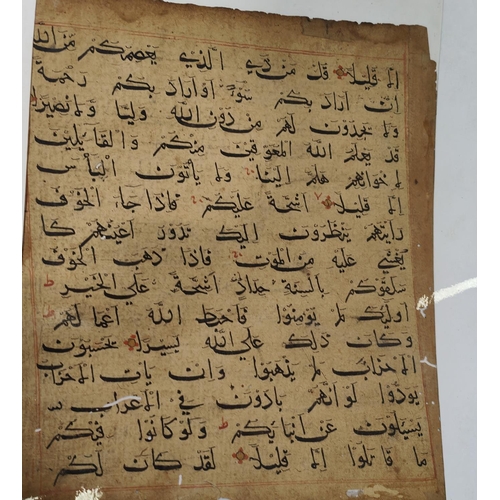 الا قليلا قل من ذي الذي يعصمكم من الله
ان اراد بكم سوءا او اراد بكم رحمة
ولا يجدون لهم من دون الله وليا ولا نصيرا
قد يعلم الله المعوقين منكم والقايلين
لاخوانهم هلم الينا ولا ياتون الباس
الا قليلا اشحة عليكم فاذا جاء الخوف
رايتهم ينظرون اليك تدور اعينهم كا
يغشي عليه من الموت فاذا ذهب الخوف
سلقوكم بالسنة حداد اشحة علي الخير
اوليك لم يومنوا فاحبط الله اعمالهم
وكان ذلك علي الله يسيرا يحسبون
الاحزاب لم يذهبوا وان يات الاحزاب
يودوا لو انهم بادون في الاعراب
يسيلون عن انبايكم ولو كانوا فيكم
ما قاتلوا الا قليلا لقد كان لكم